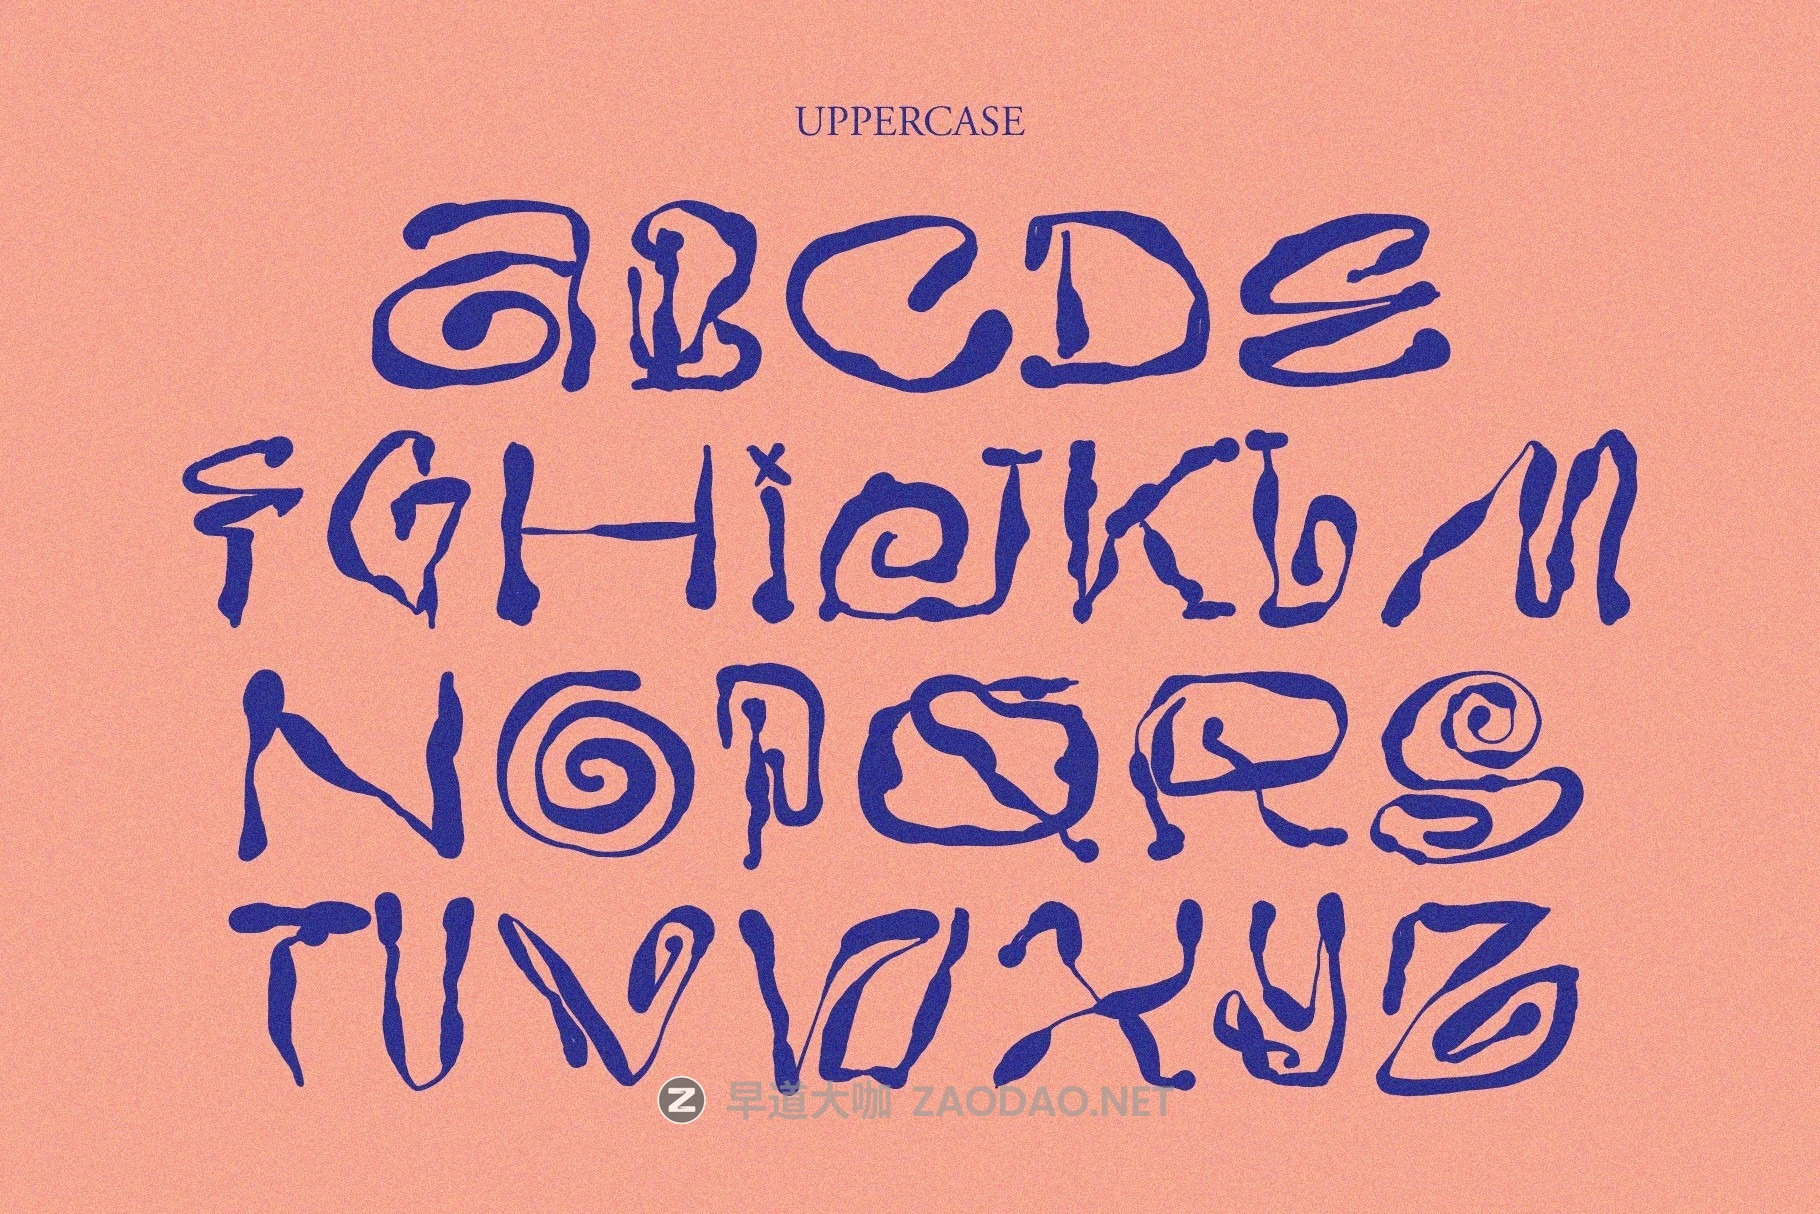 UPPERCASE
ABCDE
FGHIJKLM
NOPQRS
TUVWXYZ
Z 早道大咖 ZAODAO.NET